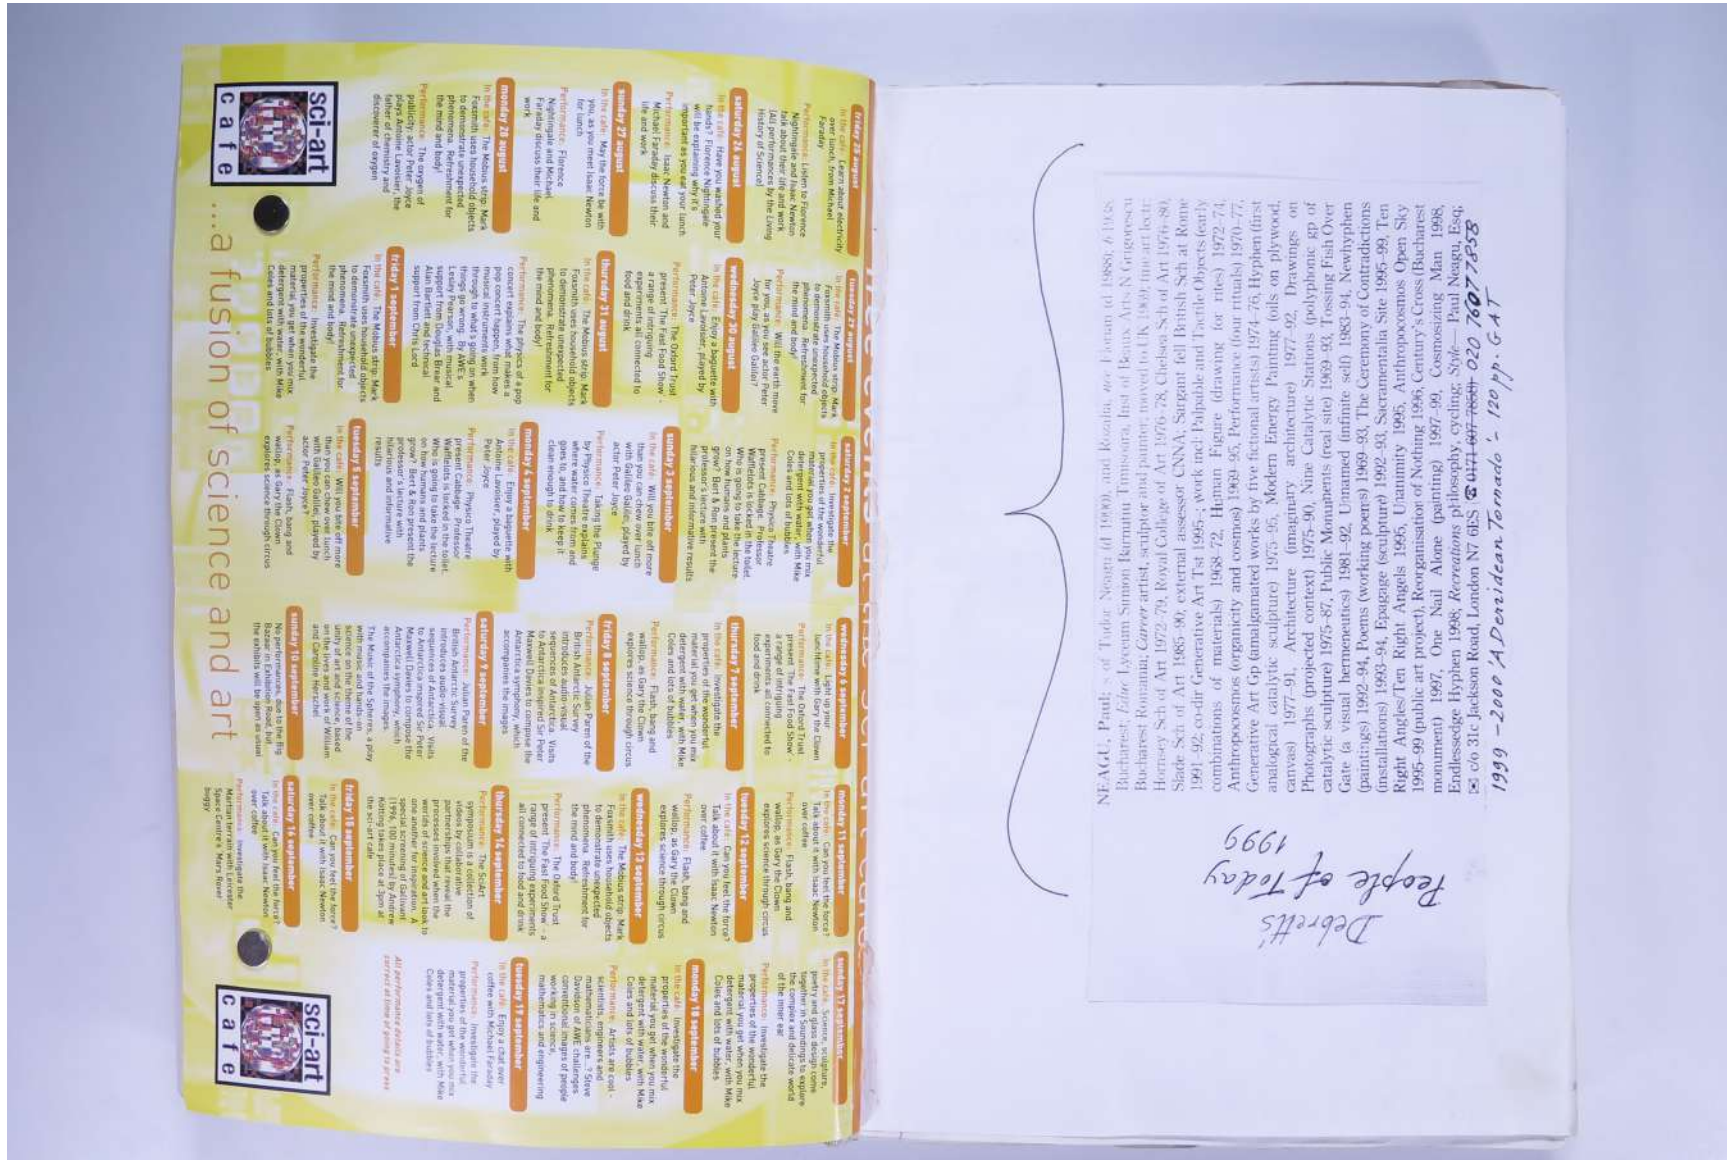 friday 25 august
In the café: Learn about electricity
over lunch, from Michael
Faraday
Performance: Listen to Florence
Nightingale and Isaac Newton
talk about their life and work
(All performances by the Living
History of Science)
saturday 26 august
In the café: Have you washed your
hands? Florence Nightingale
will be explaining why it's
important as you eat your lunch
Performance: Isaac Newton and
Michael Faraday discuss their
life and work
sunday 27 august
In the café: May the force be with
you, as you meet Isaac Newton
for lunch
Performance: Florence
Nightingale and Michael
Faraday discuss their life and
work
monday 28 august
In the café: The Mobius strip: Mark
Foxsmith uses household objects
to demonstrate unexpected
phenomena. Refreshment for
the mind and body!
Performance: The oxygen of
publicity: actor Peter Joyce
plays Antoine Lavoisier, the
father of chemistry and
discoverer of oxygen
tuesday 29 august
In the café: The Mobius strip: Mark
Foxsmith uses household objects
to demonstrate unexpected
phenomena. Refreshment for
the mind and body!
Performance: Will the earth move
for you, as you see actor Peter
Joyce play Galileo Galilei?
wednesday 30 august
In the café: Enjoy a baguette with
Antoine Lavoisier, played by
Peter Joyce
Performance: The Oxford Trust
present 'The Fast Food Show' -
a range of intriguing
experiments all connected to
food and drink
thursday 31 august
In the café: The Mobius strip: Mark
Foxsmith uses household objects
to demonstrate unexpected
phenomena. Refreshment for
the mind and body!
Performance: The physics of a pop
concert explains what makes a
pop concert happen, from how
musical instruments work
through to what's going on when
things go wrong. By AWE's
Lesley Pearson, with musical
support from Douglas Brear and
Alan Bartlett and technical
support from Chris Lord
friday 1 september
In the café: The Mobius strip: Mark
Foxsmith uses household objects
to demonstrate unexpected
phenomena. Refreshment for
the mind and body!
Performance: Investigate the
properties of the wonderful
material you get when you mix
detergent with water, with Mike
Coles and lots of bubbles
saturday 2 september
In the café: Investigate the
properties of the wonderful
material you get when you mix
detergent with water, with Mike
Coles and lots of bubbles
Performance: Physico Theatre
present Cabbage. Professor
Wafflelots is locked in the toilet.
Who is going to take the lecture
on how humans and plants
grow? Bert & Ron present the
professor's lecture with
hilarious and informative results
sunday 3 september
In the café: Will you bite off more
than you can chew over lunch
with Galileo Galilei, played by
actor Peter Joyce
Performance: Taking the Plunge
by Physico Theatre explains
where water comes from and
goes to, and how to keep it
clean enough to drink
monday 4 september
In the café: Enjoy a baguette with
Antoine Lavoisier, played by
Peter Joyce
Performance: Physico Theatre
present Cabbage. Professor
Wafflelots is locked in the toilet.
Who is going to take the lecture
on how humans and plants
grow? Bert & Ron present the
professor's lecture with
hilarious and informative
results
tuesday 5 september
In the café: Will you bite off more
than you can chew over lunch
with Galileo Galilei, played by
actor Peter Joyce?
Performance: Flash, bang and
wallop, as Gary the Clown
explores science through circus
wednesday 6 september
In the café: Light up your
lunchtime with Gary the Clown
Performance: The Oxford Trust
present 'The Fast Food Show' -
a range of intriguing
experiments all connected to
food and drink
thursday 7 september
In the café: Investigate the
properties of the wonderful
material you get when you mix
detergent with water, with Mike
Coles and lots of bubbles
Performance: Flash, bang and
wallop, as Gary the Clown
explores science through circus
friday 8 september
Performance: Julian Paren of the
British Antarctic Survey
introduces audio-visual
sequences of Antarctica. Visits
to Antarctica inspired Sir Peter
Maxwell Davies to compose the
Antarctica symphony, which
accompanies the images
saturday 9 september
Performance: Julian Paren of the
British Antarctic Survey
introduces audio-visual
sequences of Antarctica. Visits
to Antarctica inspired Sir Peter
Maxwell Davies to compose the
Antarctica symphony, which
accompanies the images
The Music of the Spheres, a play
with music and hands-on
science on the theme of the
unity of art and science, based
on the lives and work of William
and Caroline Herschel
sunday 10 september
No performances, due to the Big
Bazaar in Exhibition Road, but
the exhibits will be open as usual
monday 11 september
In the café: Can you feel the force?
Talk about it with Isaac Newton
over coffee
Performance: Flash, bang and
wallop, as Gary the Clown
explores science through circus
tuesday 12 september
In the café: Can you feel the force?
Talk about it with Isaac Newton
over coffee
Performance: Flash, bang and
wallop, as Gary the Clown
explores science through circus
wednesday 13 september
In the café: The Mobius strip: Mark
Foxsmith uses household objects
to demonstrate unexpected
phenomena. Refreshment for
the mind and body!
Performance: The Oxford Trust
present 'The Fast Food Show' - a
range of intriguing experiments
all connected to food and drink
thursday 14 september
Performance: The SciArt
symposium is a collection of
videos by collaborative
partnerships that reveal the
processes involved when the
worlds of science and art look to
one another for inspiration. A
special screening of Gallivant
(1996, 100 minutes) by Andrew
Kotting takes place at 3pm at
the sci-art café
friday 15 september
In the café: Can you feel the force?
Talk about it with Isaac Newton
over coffee
saturday 16 september
In the café: Can you feel the force?
Talk about it with Isaac Newton
over coffee
Performance: Investigate the
Martian terrain with Leicester
Space Centre's 'Mars Rover'
buggy
sunday 17 september
In the café: Science, sculpture,
poetry and glass design come
together in Soundings to explore
the complex and delicate world
of the inner ear
Performance: Investigate the
properties of the wonderful
material you get when you mix
detergent with water, with Mike
Coles and lots of bubbles
monday 18 september
In the café: Investigate the
properties of the wonderful
material you get when you mix
detergent with water, with Mike
Coles and lots of bubbles
Performance: Artists are cool -
scientists, engineers and
mathematicians are..? Steve
Davidson of AWE challenges
conventional images of people
working in science,
mathematics and engineering
tuesday 19 september
In the café: Enjoy a chat over
coffee with Michael Faraday
Performance: Investigate the
properties of the wonderful
material you get when you mix
detergent with water, with Mike
Coles and lots of bubbles
All performance details are
correct at time of going to press
sci-art
cafe
...a fusion of science and art
sci-art
cafe
NEAGU, Paul; s of Tudor Neagu (d 1990), and Rozalia, née Florian (d 1988);
Bucharest; Educ Lyceum Simon Barnutiu Timisoara, Inst of Beaux Arts N Grigorescu
Bucharest Romania; Career artist, sculptor and painter; moved to UK 1969, fine art lectr:
Hornsey Sch of Art 1972-79, Royal College of Art 1976-78, Chelsea Sch of Art 1976-80,
Slade Sch of Art 1985-90; external assessor CNNA, Sargant fell British Sch at Rome
1991-92; co-dir Generative Art Tst 1995-; work incl: Palpable and Tactile Objects (early
combinations of materials) 1968-72, Human Figure (drawing for rites) 1972-74,
Anthropocosmos (organicity and cosmos) 1969-95, Performance (four rituals) 1970-77,
Generative Art Gp (amalgamated works by five fictional artists) 1974-76, Hyphen (first
analogical catalytic sculpture) 1975-95, Modern Energy Painting (oils on plywood,
canvas) 1977-91, Architecture (imaginary architecture) 1977-92, Drawings on
Photographs (projected context) 1975-90, Nine Catalytic Stations (polyphonic gp of
catalytic sculpture) 1975-87, Public Monuments (real site) 1969-93, Tossing Fish Over
Gate (a visual hermeneutics) 1981-92, Unnamed (infinite self) 1983-94, Newhyphen
(paintings) 1992-94, Poems (working poems) 1969-93, The Ceremony of Contradictions
(installations) 1993-94, Epagage (sculpture) 1992-93, Sacramentalia Site 1995-99, Ten
Right Angles/Ten Right Angels 1995, Unanimity 1995, Anthropocosmos Open Sky
1995-99 (public art project), Reorganisation of Nothing 1996, Century's Cross (Bucharest
monument) 1997, One Nail Alone (painting) 1997-99, Cosmosizing Man 1998,
Endlessedge Hyphen 1998; Recreations philosophy, cycling; Style— Paul Neagu, Esq;
✉ c/o 31c Jackson Road, London N7 6ES ☎ 0171 607 7858) 020 76077858
1999-2000 'A Derridean Tornado - 120 pp. GAT
Debrett's
People of Today
1999